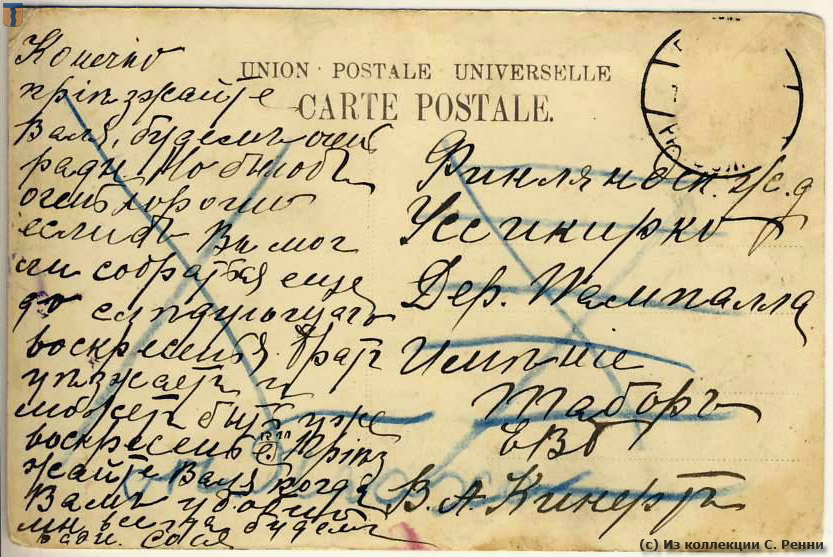 UNION POSTALE UNIVERSELLE
CARTE POSTALE.
Конечно
пріѣзжайте
Валя, будемъ очень
рады. Но былобъ
очень хорошо
еслибъ Вы мог
ли собраться еще
до слѣдующаго
воскресенья. Братъ
уѣзжаетъ и
можетъ быть уже
воскресенье. Пріѣз
жайте Валя когда
Вамъ удобнѣй
мы всегда будемъ
рады. Соня
Финляндск. ж/с. д
Уссикирко
Дер. Вампалла
Имѣніе
Таборъ
ЕВб
В. А. Кинертъ
(c) Из коллекции С. Ренни